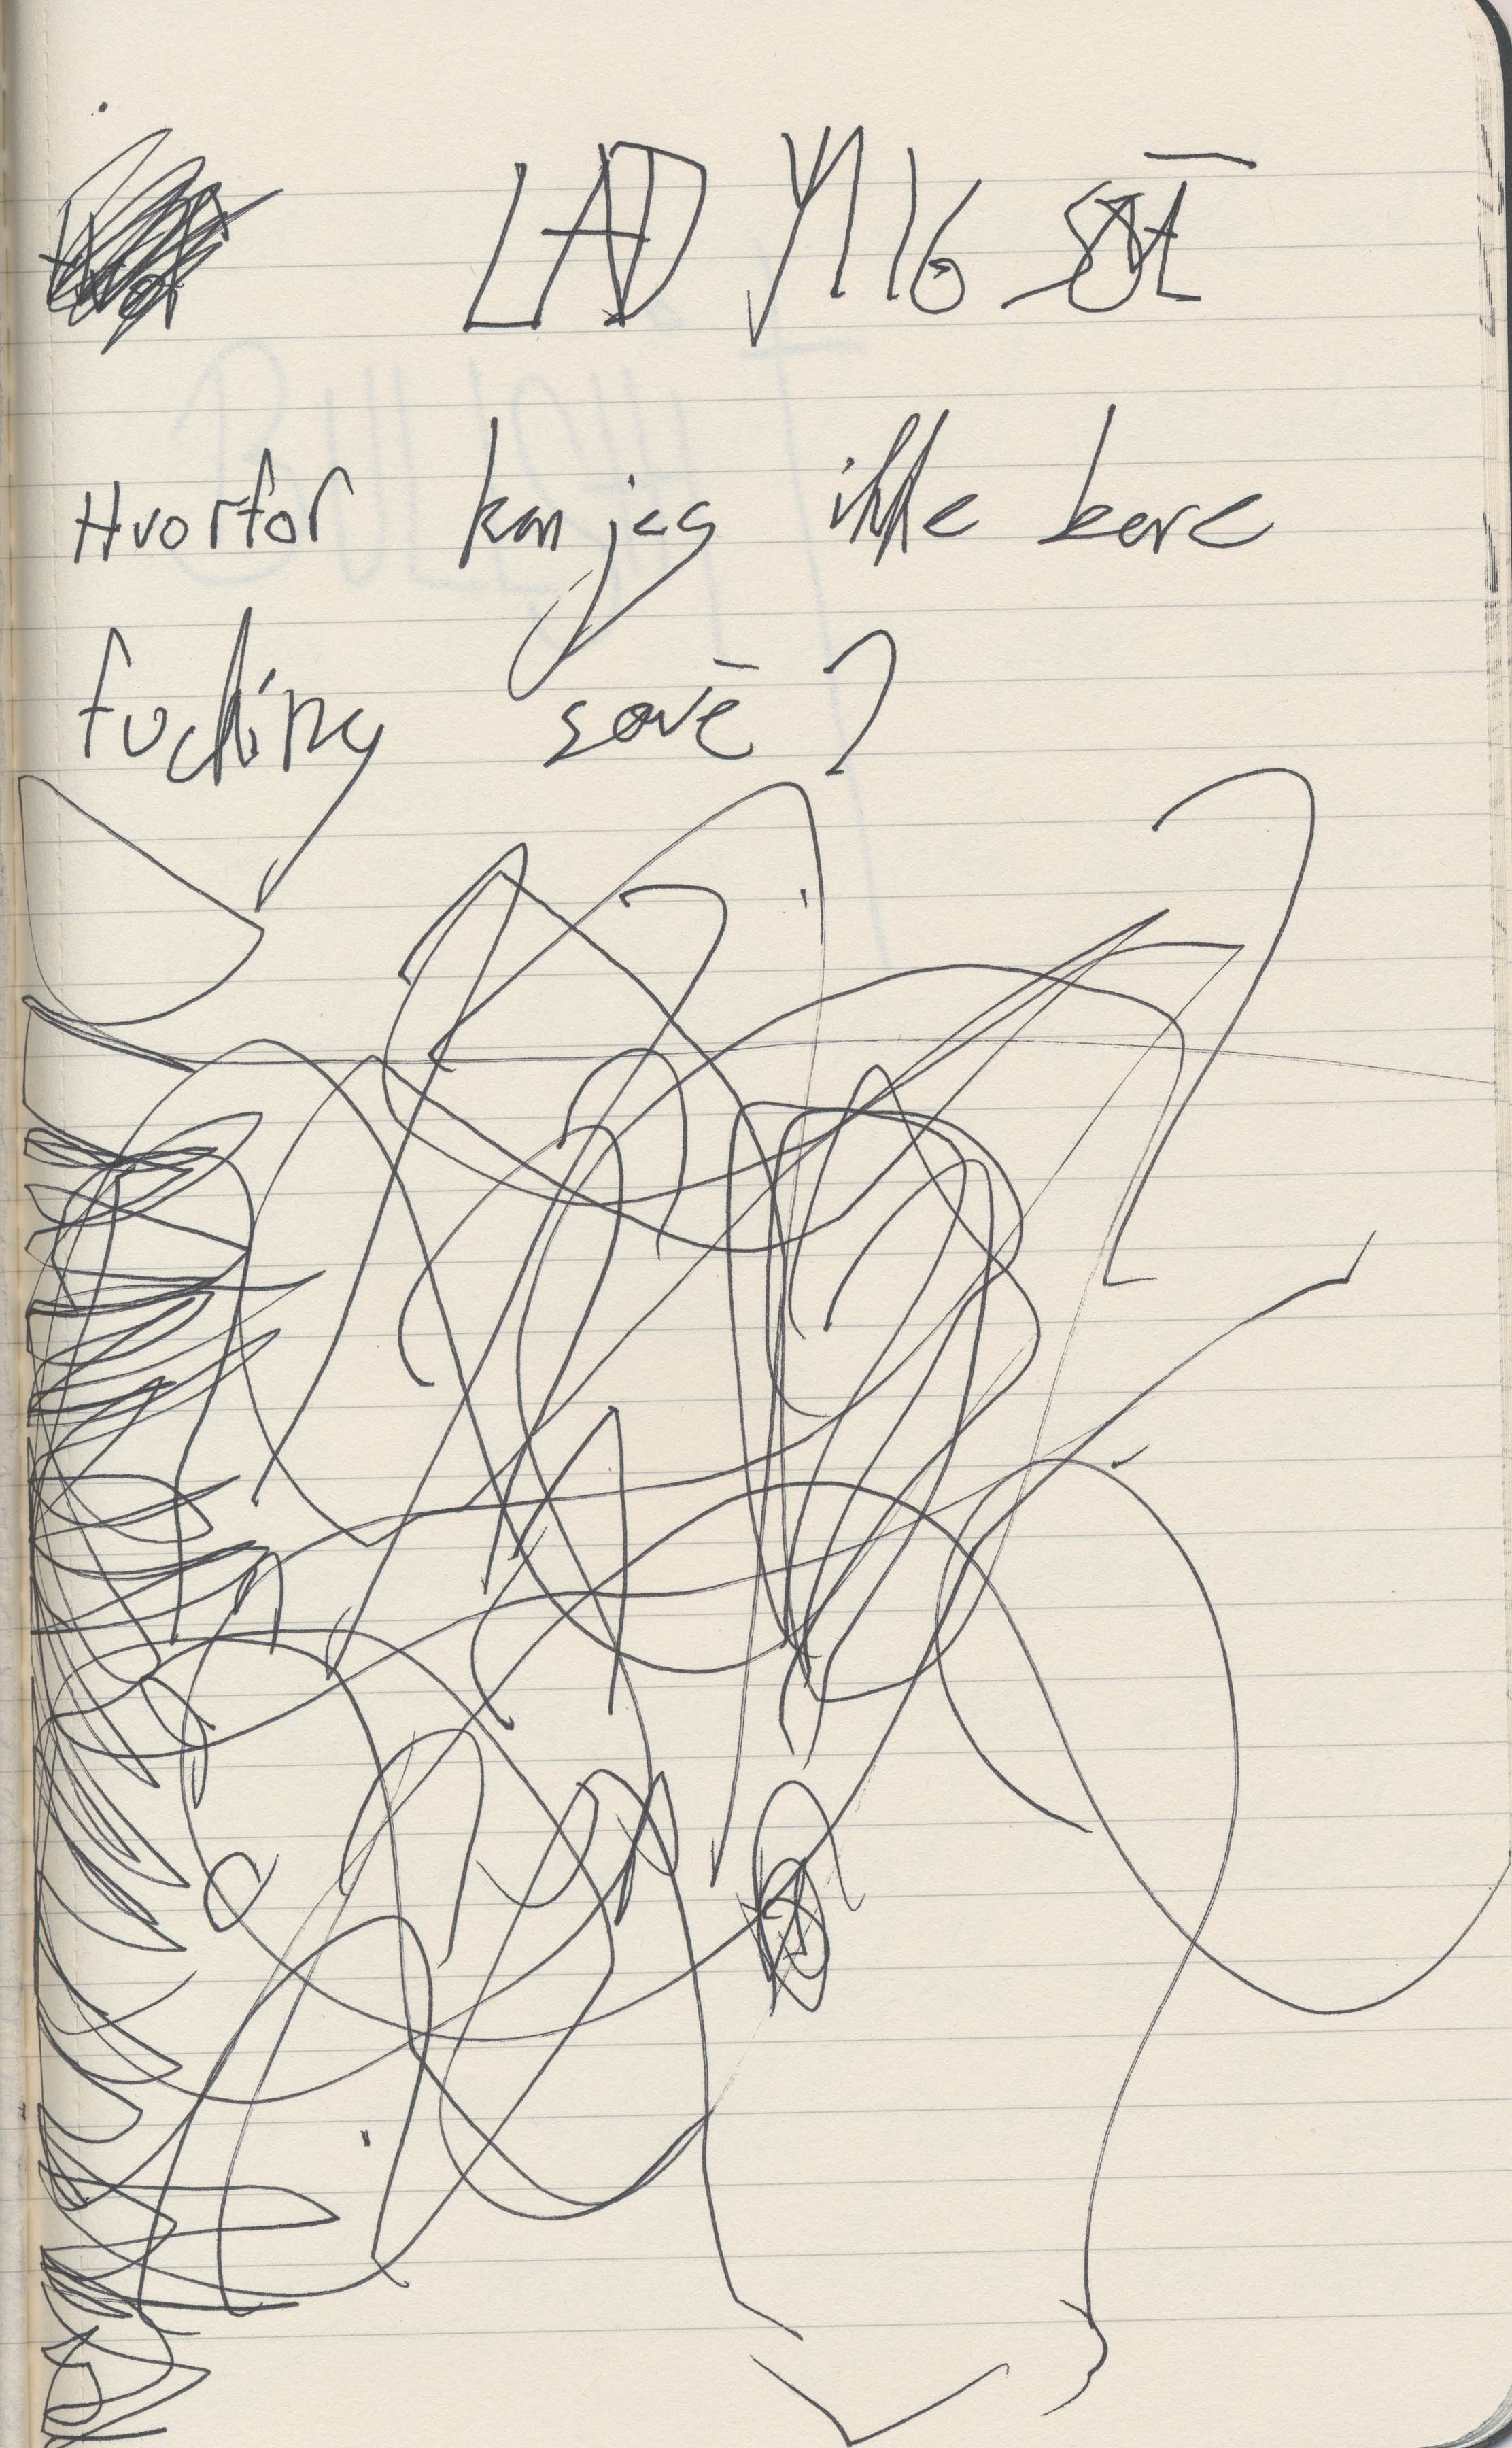 LAD MIG
Hvorfor kan jeg ikke bare
fucking sove?